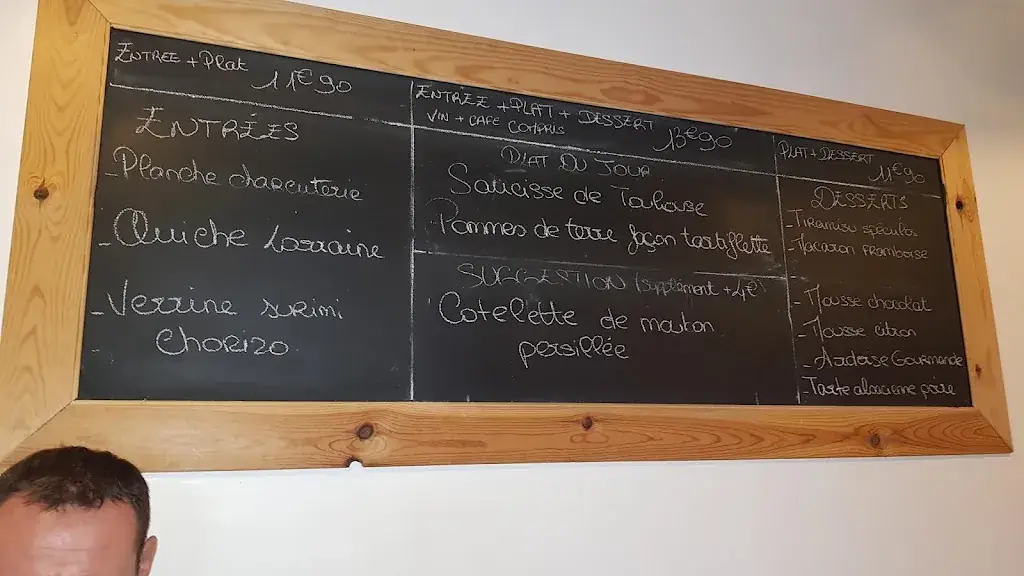 ENTREE + Plat 11€90
ENTRÉES
- Planche charcuterie
- Quiche Lorraine
- Verrine surimi
- Chorizo
ENTRÉE + PLAT + DESSERT 13€90
VIN + CAFE COMPRIS
PLAT DU JOUR
Saucisse de Toulouse
Pommes de terre façon tartiflette
SUGGESTION (supplément +4€)
Cotelette de mouton
persillée
PLAT + DESSERT 11€90
DESSERTS
- Tiramisu spéculos
- Macaron framboise
- Mousse chocolat
- Mousse citron
- Ardoise Gourmande
- Tarte alsacienne poire